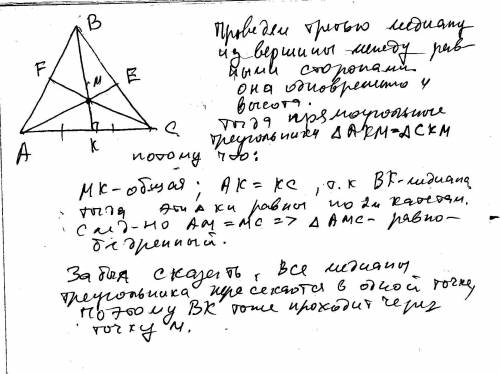 B
F
M
E
A
K
C
Проведем третью медиану
из вершины между рав
ными сторонами
она одновременно и
высота.
Тогда прямоугольные
треугольники ΔAKM=ΔCKM
потому что:
MK-общая; AK=KC, т.к BK-медиана
тогда эти Δки равны по 2м катетам.
След-но AM=MC=> ΔAMC- равно-
бедренный.
Забыл сказать, все медианы
треугольника пересекаются в одной точке,
поэтому BK тоже проходит через
точку M.